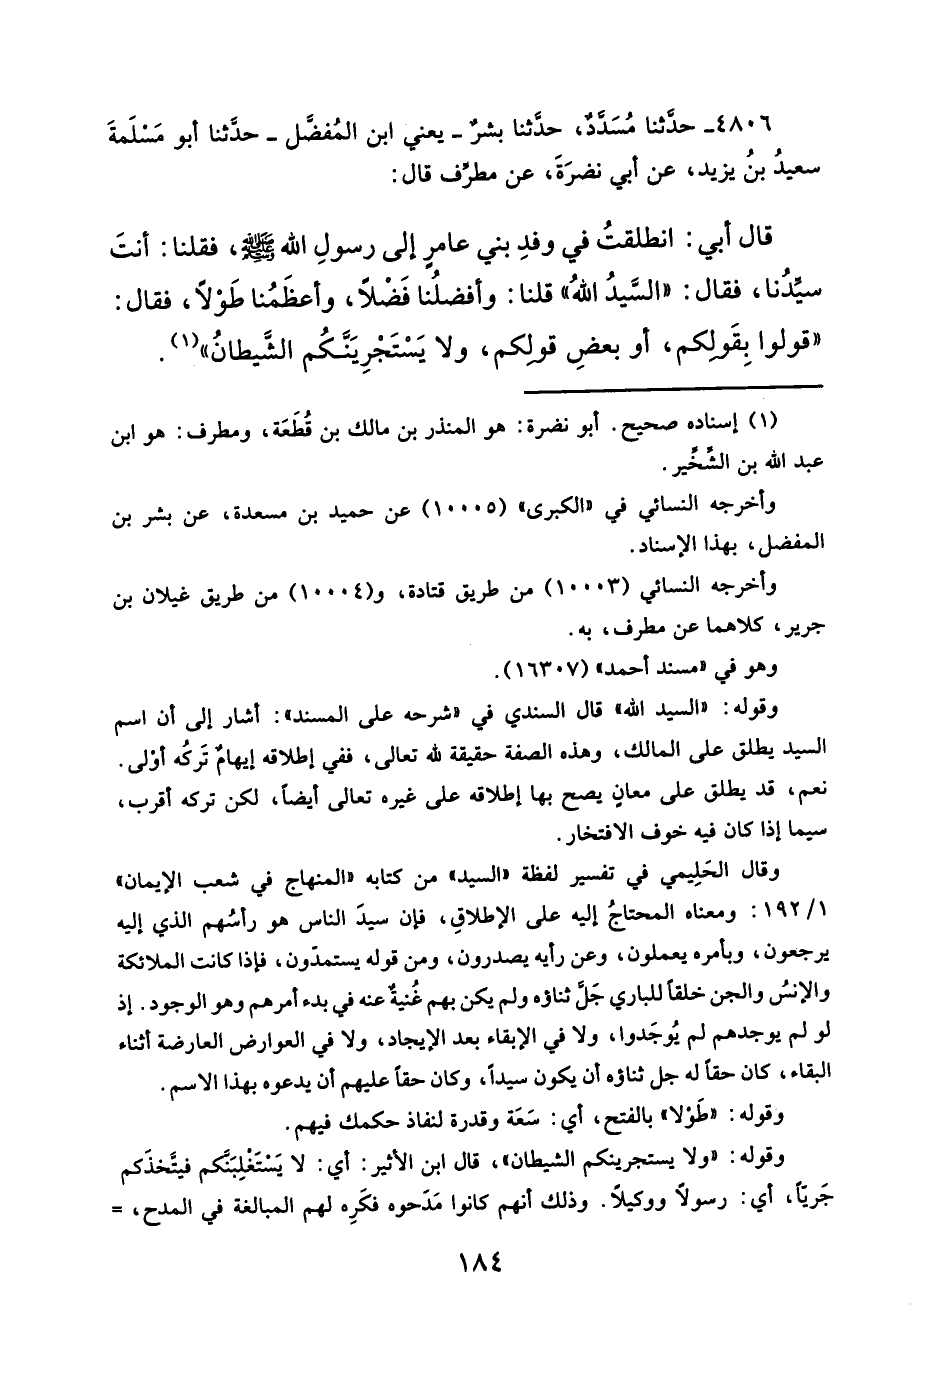 ٤٨٠٦ـ حدَّثنا مُسَدَّدٌ، حدَّثنا بشرٌ ـ يعني ابن المُفضَّل ـ حدَّثنا أبو مَسْلَمةَ
سعيدُ بنُ يزيد، عن أبي نضرَةَ، عن مطرِّف قال:
قال أبي: انطلقتُ في وفدِ بني عامرٍ إلى رسولِ الله ﷺ، فقلنا: أنتَ
سيِّدُنا، فقال: «السَّيدُ اللهُ» قلنا: وأفضلُنا فَضْلاً، وأعظَمُنا طَوْلاً، فقال:
«قولوا بِقَولِكم، أو بعضِ قولِكم، ولا يَسْتَجْرِيَنَّكُم الشَّيطانُ»(١).
(١) إسناده صحيح. أبو نضرة: هو المنذر بن مالك بن قُطَعَة، ومطرف: هو ابن
عبد الله بن الشِّخِّير.
وأخرجه النسائي في «الكبرى» (١٠٠٠٥) عن حميد بن مسعدة، عن بشر بن
المفضل، بهذا الإسناد.
وأخرجه النسائي (١٠٠٠٣) من طريق قتادة، و(١٠٠٠٤) من طريق غيلان بن
جرير، كلاهما عن مطرف، به.
وهو في «مسند أحمد» (١٦٣٠٧).
وقوله: «السيد الله» قال السندي في «شرحه على المسند»: أشار إلى أن اسم
السيد يطلق على المالك، وهذه الصفة حقيقة لله تعالى، ففي إطلاقه إيهامٌ تَركُه أوْلى.
نعم، قد يطلق على معانٍ يصح بها إطلاقه على غيره تعالى أيضاً، لكن تركه أقرب،
سيما إذا كان فيه خوف الافتخار.
وقال الحَلِيمي في تفسير لفظة «السيد» من كتابه «المنهاج في شعب الإيمان»
١/ ١٩٢: ومعناه المحتاجُ إليه على الإطلاقِ، فإن سيدَ الناس هو رأسُهم الذي إليه
يرجعون، وبأمره يعملون، وعن رأيه يصدرون، ومن قوله يستمدّون، فإذا كانت الملائكة
والإنسُ والجن خلقاً للباري جَلَّ ثناؤه ولم يكن بهم غُنيةٌ عنه في بدء أمرهم وهو الوجود. إذ
لو لم يوجدهم لم يُوجَدوا، ولا في الإبقاء بعد الإيجاد، ولا في العوارض العارضة أثناء
البقاء، كان حقاً له جل ثناؤه أن يكون سيداً، وكان حقاً عليهم أن يدعوه بهذا الاسم.
وقوله: «طَوْلا» بالفتح، أي: سَعَة وقدرة لنفاذ حكمك فيهم.
وقوله: «ولا يستجرينكم الشيطان»، قال ابن الأثير: أي: لا يَسْتَغْلِبَنَّكم فيتَّخذَكم
جَريّاً، أي: رسولاً ووكيلاً. وذلك أنهم كانوا مَدَحوه فكَرِه لهم المبالغة في المدح، =
١٨٤